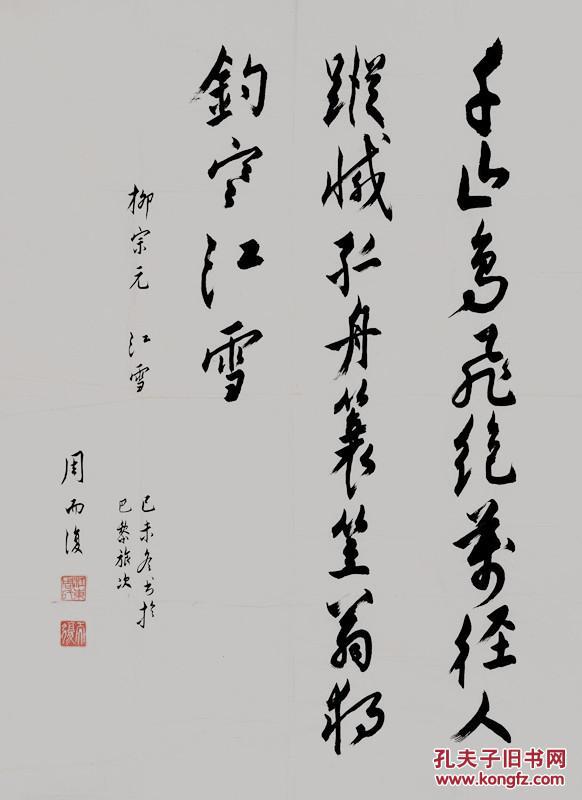 千山鳥飛絕萬径人
蹤滅孤舟蓑笠翁獨
釣寒江雪
柳宗元 江雪
己未冬书於
巴黎旅次
周而復
孔夫子旧书网
www.kongfz.com